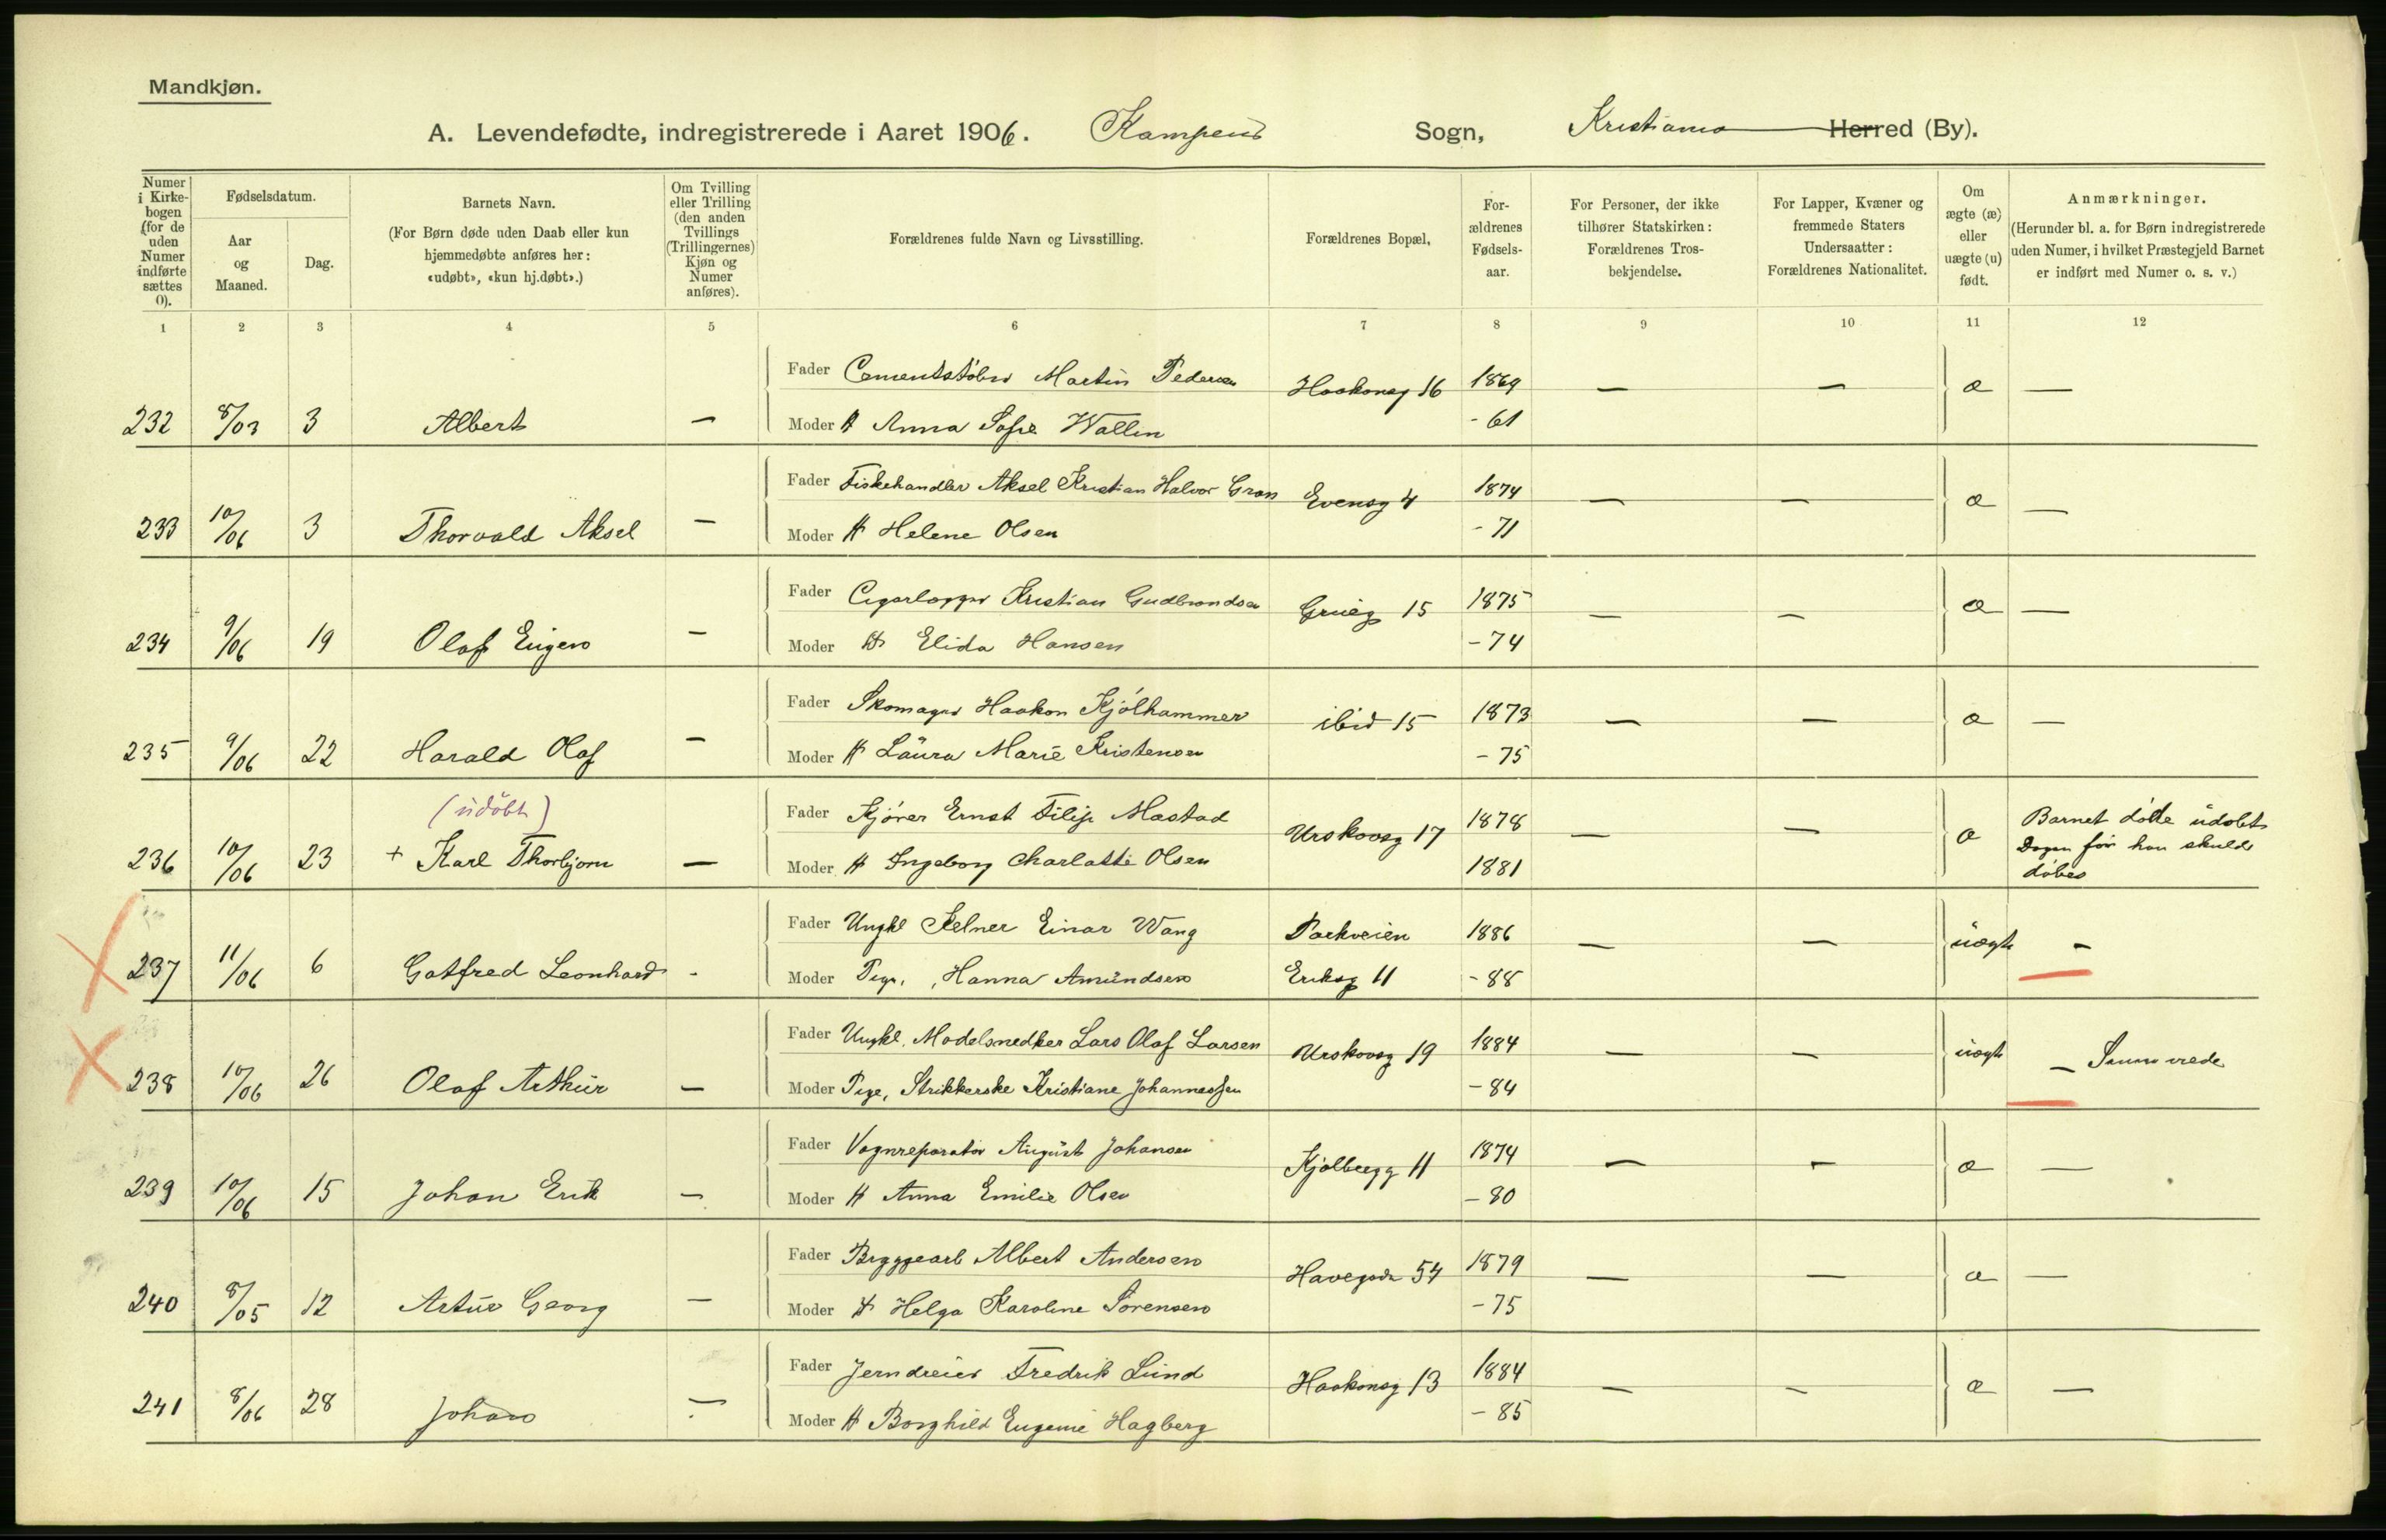 Mandkjøn.
A. Levendefødte, indregistrerede i Aaret 1906. Kampens Sogn, Kristiania Herred (By).
Numer i Kirkebogen (for de uden Numer indførte sættes 0).
Fødselsdatum.
Aar og Maaned.
Dag.
Barnets Navn.
(For Børn døde uden Daab eller kun hjemmedøbte anføres her: «udøbt», «kun hj.døbt».)
Om Tvilling eller Trilling (den anden Tvillings (Trillingernes) Kjøn og Numer anføres).
Forældrenes fulde Navn og Livsstilling.
Forældrenes Bopæl,
Forældrenes Fødselsaar.
For Personer, der ikke tilhører Statskirken: Forældrenes Trosbekjendelse.
For Lapper, Kvæner og fremmede Staters Undersaatter: Forældrenes Nationalitet.
Om ægte (æ) eller uægte (u) født.
Anmærkninger.
(Herunder bl. a. for Børn indregistrerede uden Numer, i hvilket Præstegjeld Barnet er indført med Numer o. s. v.)
1 2 3 4 5 6 7 8 9 10 11 12
Fader Cementstöber Martin Pedersen Haakonsg 16 1869 — — æ —
232 8/03 3 Albert — Moder H Anna Sofie Wallin - 61
Fader Fiskehandler Aksel Kristian Halvor Gran Evensg 4 1874 — — æ —
233 10/06 3 Thorvald Aksel — Moder H Helene Olsen - 71
Fader Kristian Gudbrandsen Grueg 15 1875 — — æ —
234 9/06 19 Olaf Eugen — Moder H Elida Hansen - 74
Fader Skomager Haakon Kjölhammer ibid 15 1873 — — æ —
235 9/06 22 Harald Olaf — Moder H Laura Marie Kristensen - 75
(udöbt)
Fader Kjörer Ernst Filip Mastad Urskovsg 17 1878 — — æ Barnet döde udöbt Dagen för han skulde döbes
236 10/06 23 + Karl Thorbjorn — Moder H Ingeborg Charlotte Olsen 1881
Fader Ungkl Kelner Einar Wang Parkveien 1886 — — uægte —
237 11/06 6 Gotfred Leonhard - Moder Pige, Hanna Amundsen Eriksg 11 - 88
Fader Ungkl. Modelsnedker Lars Olaf Larsen Urskovsg 19 1884 — — uægte —
238 10/06 26 Olaf Arthur — Moder Pige, Strikkerske Kristiane Johannessen - 84
Fader Vognreparatör August Johansen Kjölbergg 11 1874 — — æ —
239 10/06 15 Johan Erik — Moder H Anna Emilie Olsen - 80
Fader Bryggearb Albert Andersen Havegade 54 1879 — — æ —
240 8/05 12 Artur Georg — Moder H Helga Karoline Sörensen - 75
Fader Jerndreier Fredrik Lund Haakonsg 13 1884 — — æ —
241 8/06 28 Johan — Moder H Borghild Eugenie Hagberg - 85